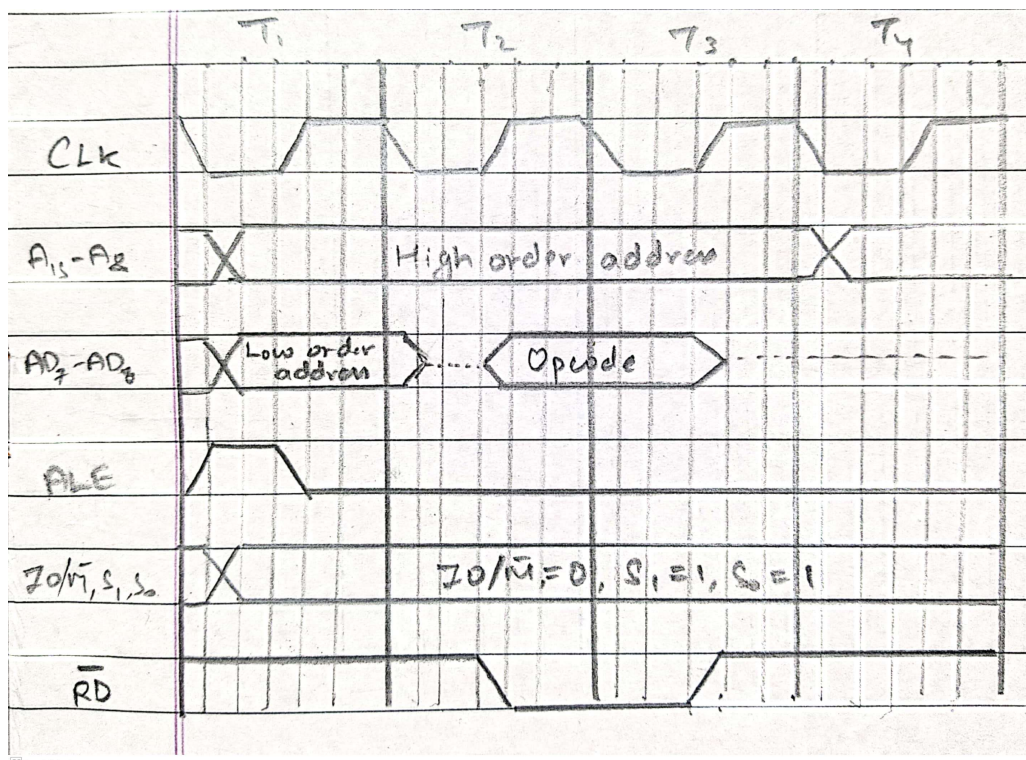 T₁ T₂ T₃ T₄
CLK
A₁₅-A₈ High order address
AD₇-AD₀ Low order address Opcode
ALE
IO/M̅, S₁, S₀ IO/M̅ = 0, S₁ = 1, S₀ = 1
R̅D̅